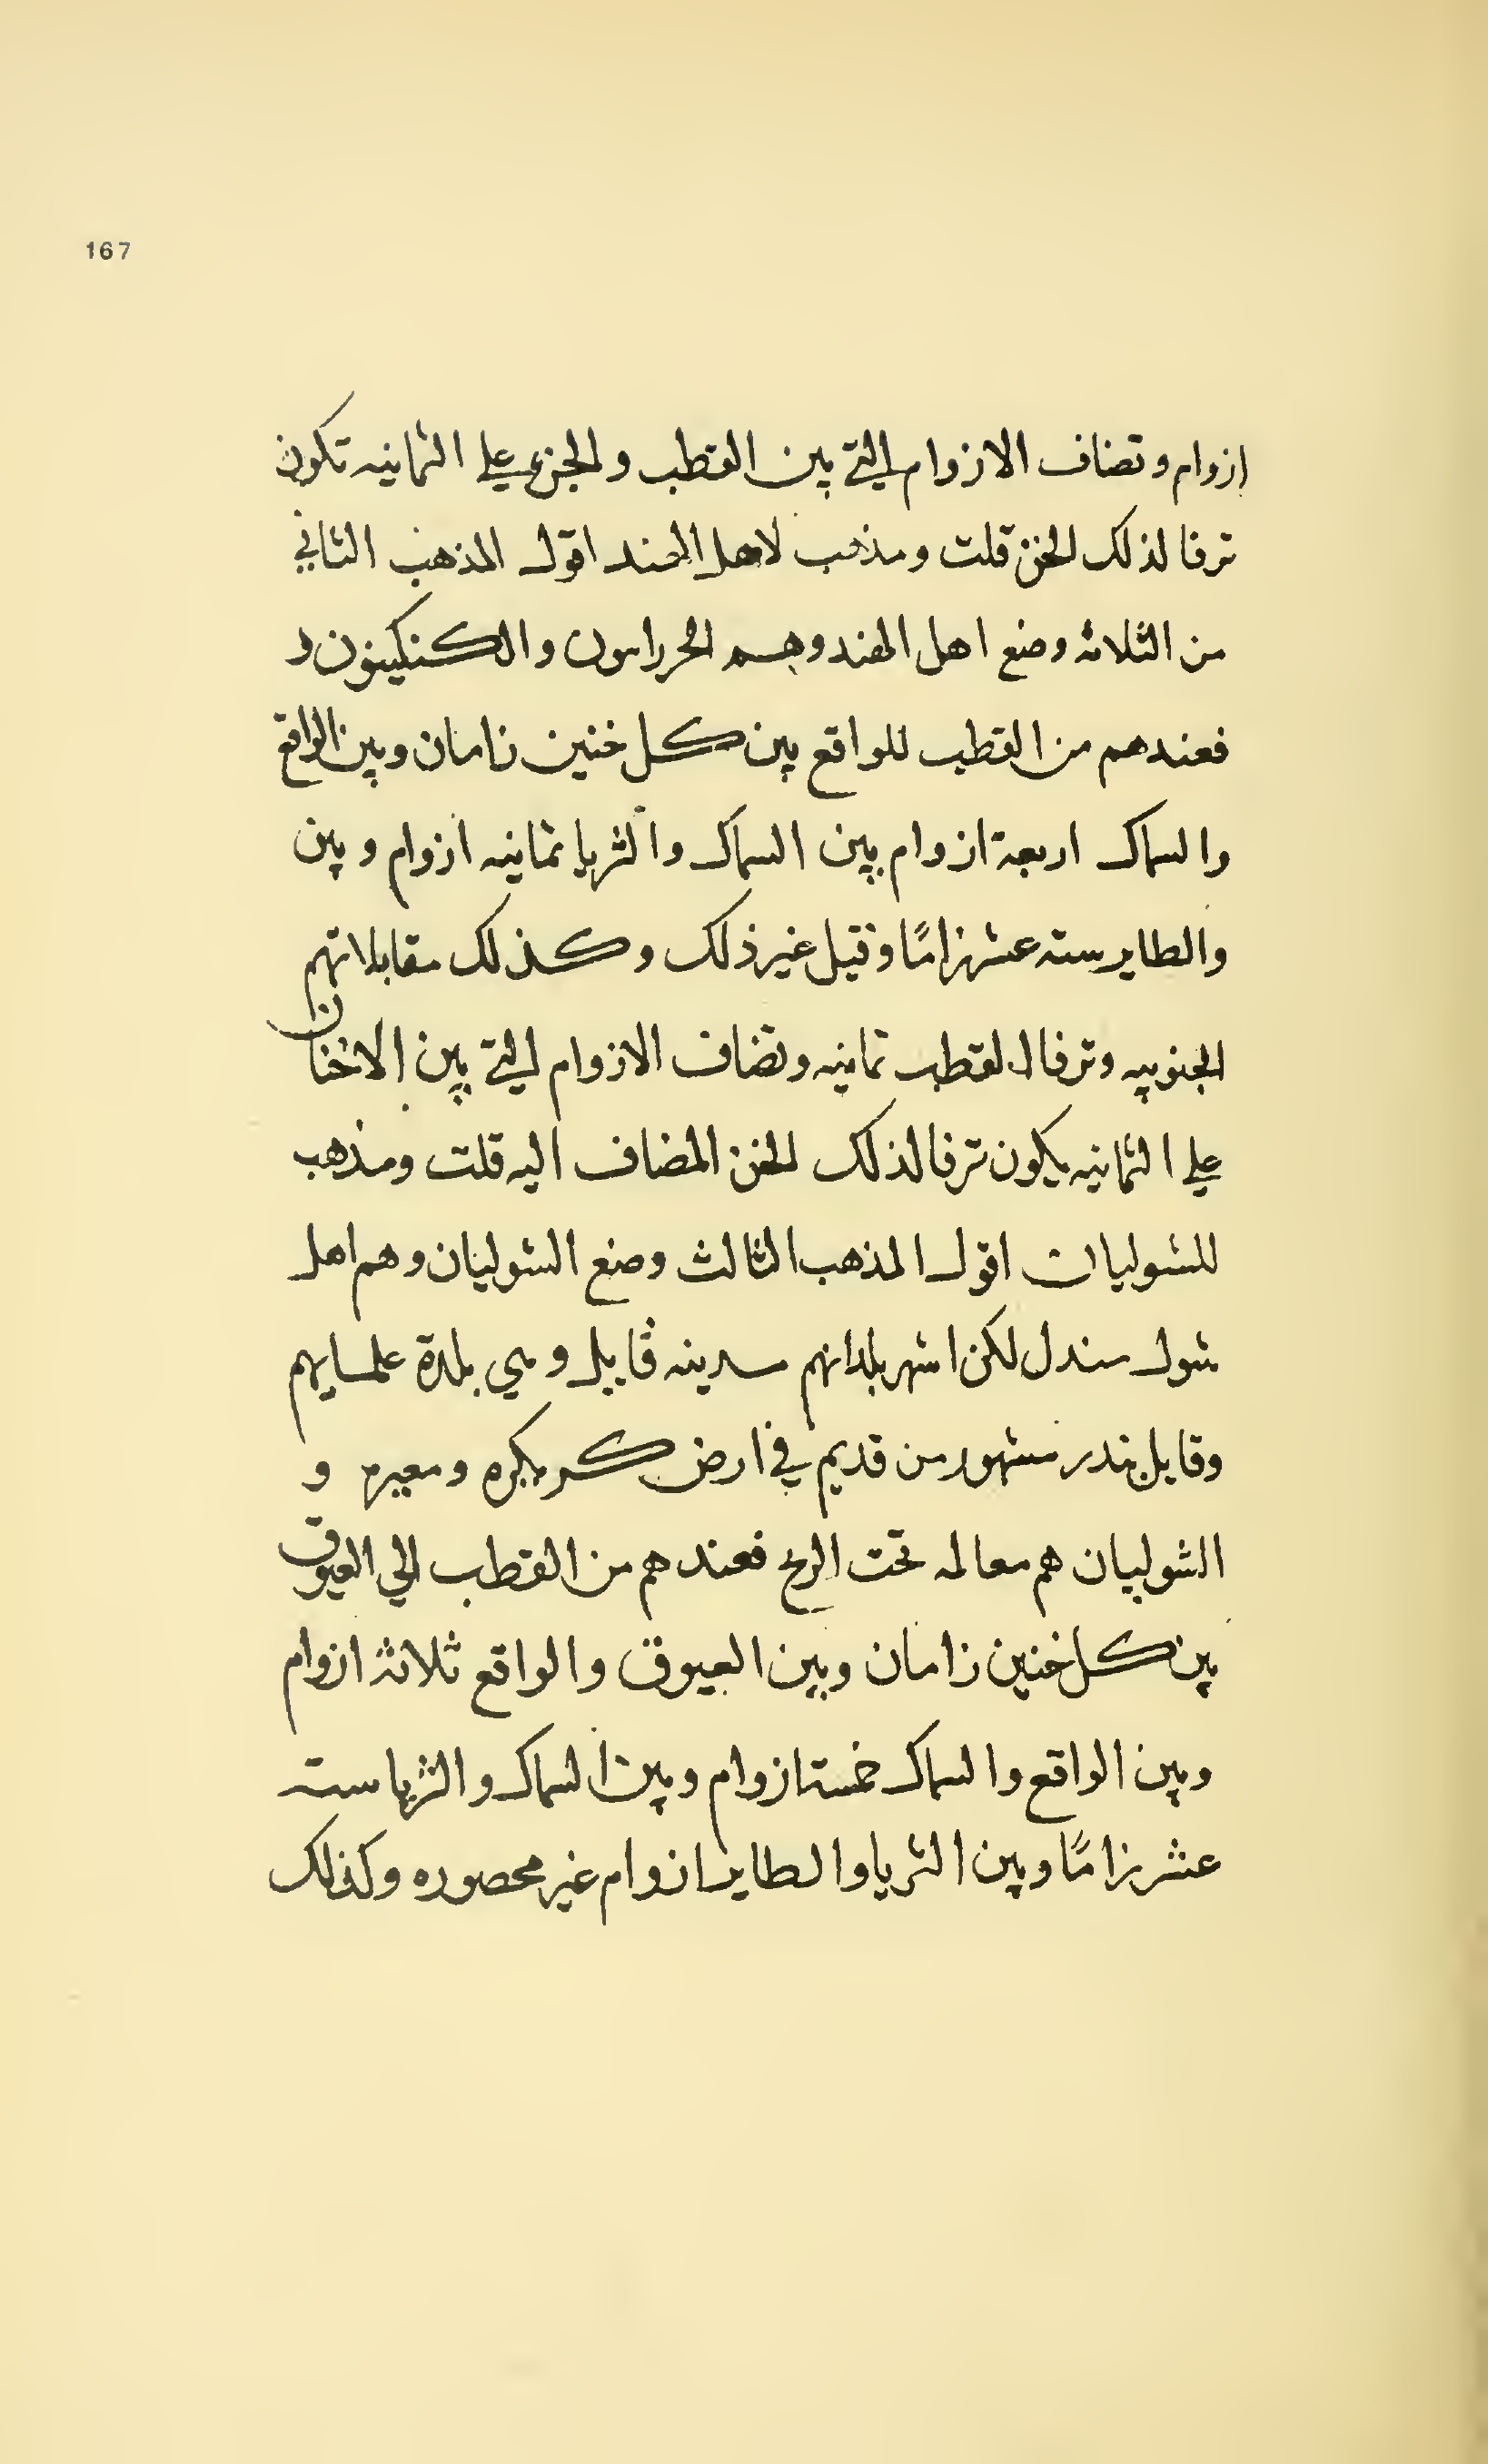 167
ازوام وتضاف الازوام التي بين القطب والجزء علي الثمانيه تكون
ترفا لذلك الخن قلت ومذهب لاهل الهند اقول المذهب الثاني
من الثلاثه وضع اهل الهند وهم والكنكينون و
فعندهم من القطب للواقع بين كل خنين زامان وبين الواقع
والسماك اربعة ازوام بين السماك والثريا ثمانيه ازوام وبين
والطاير سته عشر زامًا وقيل غير ذلك وكذلك مقابلاتهم
الجنوبيه وترفا القطب ثمانيه وتضاف الازوام التي بين الاخنان
علي الثمانيه يكون ترفا لذلك الخن المضاف اليه قلت ومذهب
للشوليان اقول المذهب الثالث وضع الشوليان وهم اهل
شول مندل لكن اشهر بلدانهم مدينه قايل وهي بلدة علمايهم
وقايل بندر مشهور من قديم في ارض ومعبرم و
الشوليان هم معالمه تحت الريح فعندهم من القطب الي العيوق
بين كل خنين زامان وبين العيوق والواقع ثلاثة ازوام
وبين الواقع والسماك خمسة ازوام وبين السماك والثريا سته
عشر زامًا وبين الثريا والطاير ازوام غير محصوره وكذلك